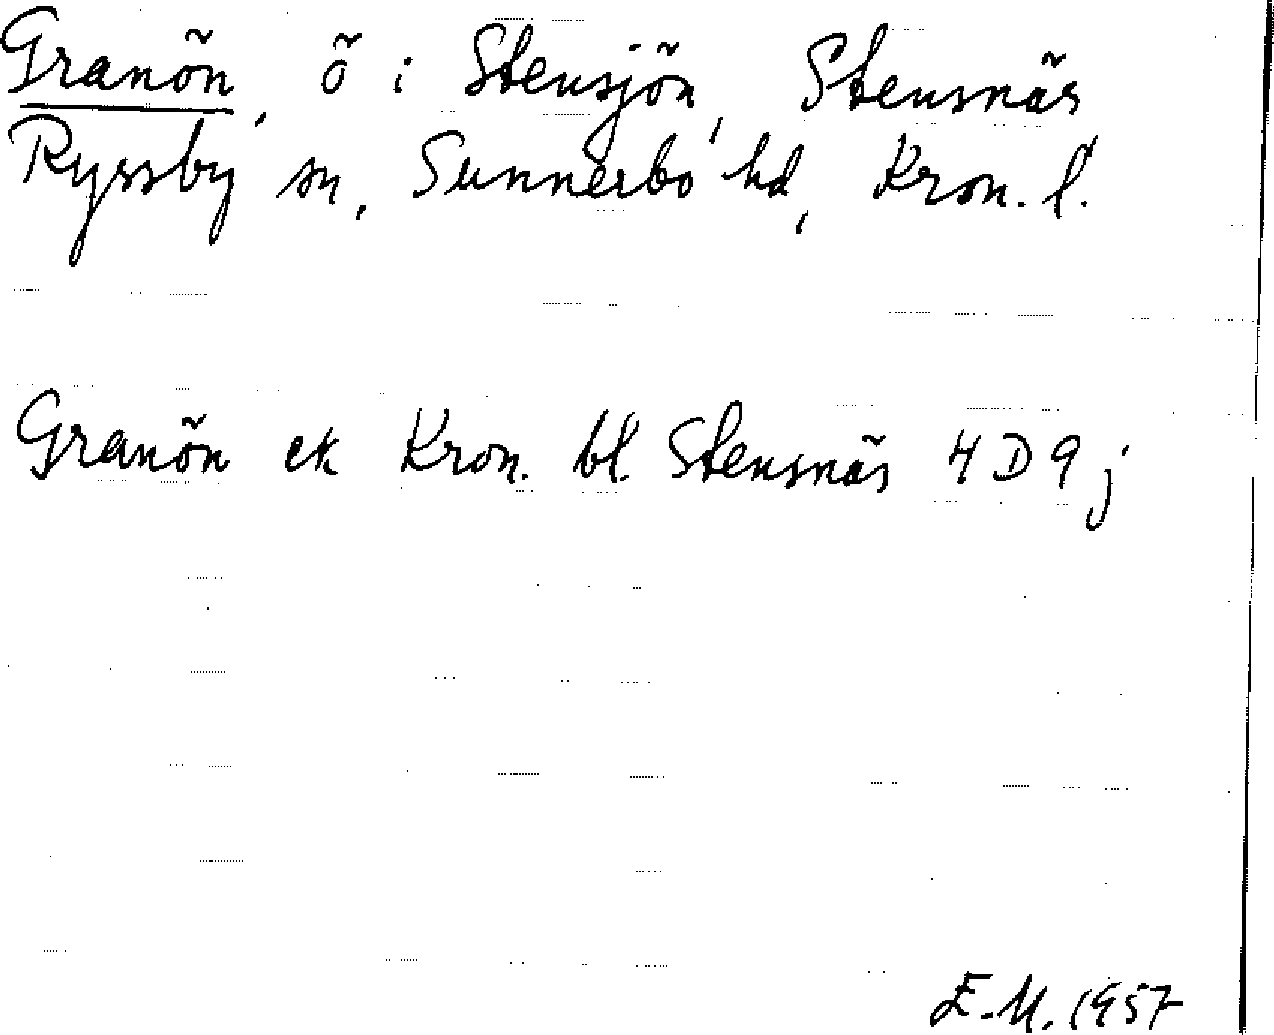 Granön, ö i Stensjön, Stensnäs
Ryssby sn, Sunnerbo hd, Kron. l.
Granön ek Kron. bl. Stensnäs 4D9j
E.M. 1957